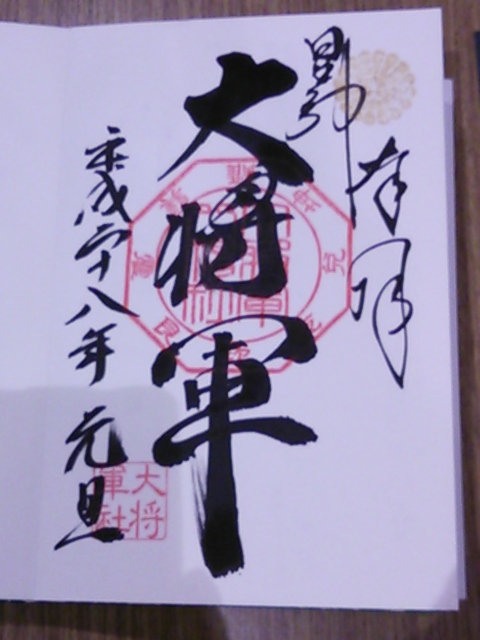 奉拝
大将軍
平成二十八年 元旦
大将
軍社